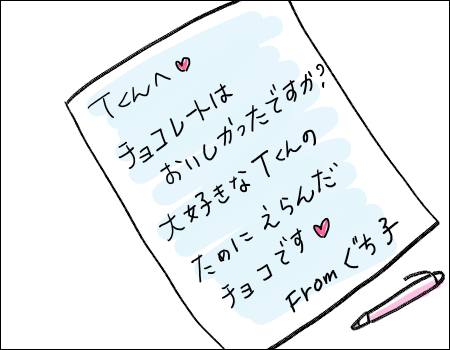 Tくんへ♥
チョコレートは
おいしかったですか?
大好きなTくんの
ためにえらんだ
チョコです♥
Fromぐち子